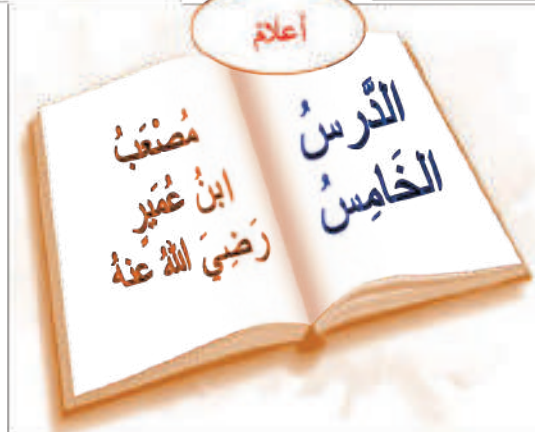 أعلامٌ
الدَّرسُ
الخَامِسُ
مُصْعَبُ
ابنُ عُمَيرٍ
رَضِيَ اللهُ عنهُ